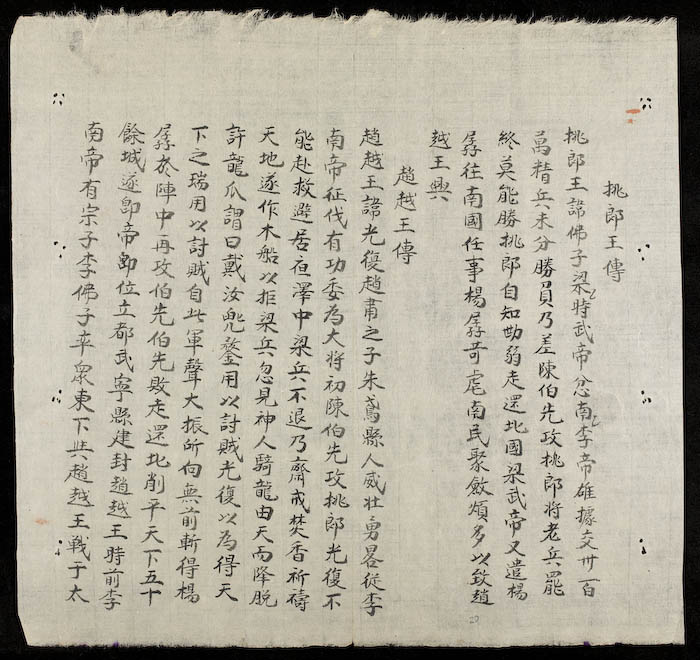 桃郎王傳
桃郎王諱佛子梁時武帝忿南李帝雄據交卅一百
萬精兵未分勝員乃差陳伯先攻桃郎將老兵罷
終莫能勝桃郎自知勢弱走還北國梁武帝又遣楊
孱徃南國任事楊孱苛虐南民聚斂煩多以致趙
越王興
趙越王傳
趙越王諱光復趙肅之子朱鳶縣人威壮勇畧從李
南帝征伐有功委為大將初陳伯先攻桃郎光復不
能赴救避居夜澤中梁兵不退乃齋戒焚香祈禱
天地遂作木船以拒梁兵忽見神人騎龍由天而降脫
許龍爪謂曰戴汝兜鍪用以討賊光復以為得天
下之瑞用以討賊自此軍聲大振所向無前斬得楊
孱於陣中再攻伯先伯先敗走還北削平天下五十
餘城遂即帝即位立都武寧縣建封趙越王時前李
南帝有宗子李佛子率衆東下共趙越王戰于太